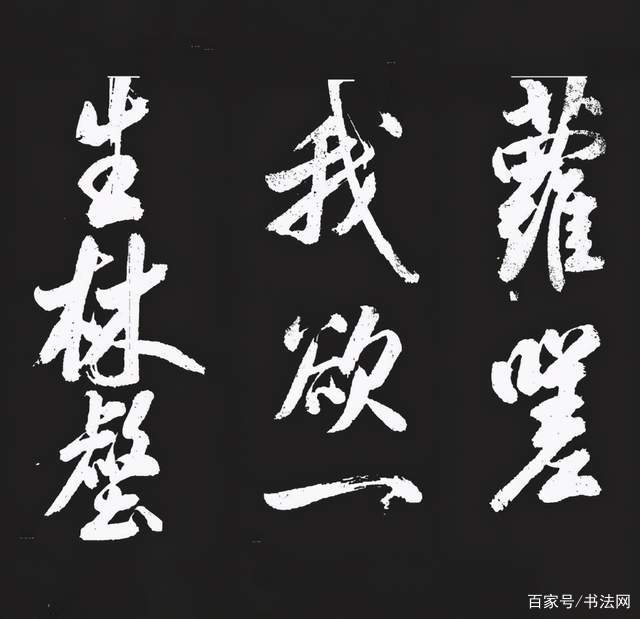 蘿嗟
我欲一
生林壑
百家号/书法网